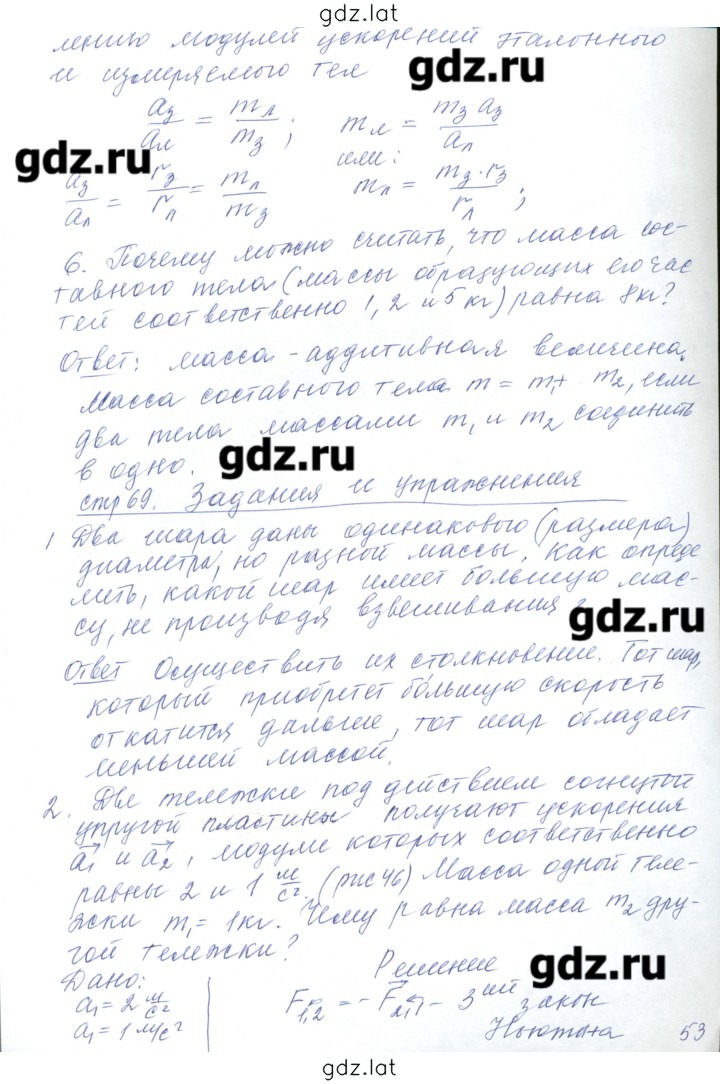 gdz.lat
лению модулей ускорений эталонного
и измеряемого тел
gdz.ru
aз/aл = mл/mз; mл = mз aз/aл
gdz.ru
или:
aз/aл = rз/rл = mл/mз mл = mз·rз/rл;
6. Почему можно считать, что масса сос-
тавного тела (массы образующих его час
тей соответственно 1, 2 и 5 кг) равна 8кг?
Ответ: масса - аддитивная величина.
Масса составного тела m = m₁ + m₂, если
два тела массами m₁ и m₂ соединить
в одно.
gdz.ru
стр 69. Задания и упражнения
1 Два шара даны одинакового (размера)
диаметра, но разной массы. Как опреде
лить, какой шар имеет большую мас-
су, не производя взвешивания?
gdz.ru
Ответ Осуществить их столкновение. Тот шар,
который приобретет бо́льшую скорость
откатится дальше, тот шар обладает
меньшей массой.
2. Две тележки под действием согнутой
упругой пластины получают ускорения
a⃗₁ и a⃗₂, модули которых соответственно
равны 2 и 1 м/с². (рис 46) Масса одной теле-
жки m₁ = 1кг. Чему равна масса m₂ дру-
гой тележки?
gdz.ru
Дано: Решение
a₁ = 2 м/с² F⃗₁,₂ = - F⃗₂,₁ - 3ий закон
a₁ = 1 м/с² Ньютона
53
gdz.lat